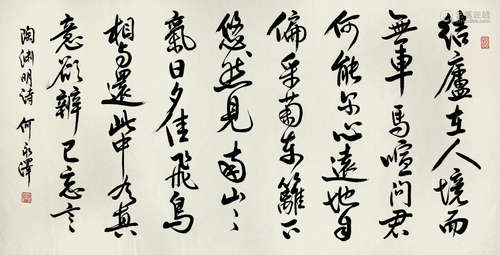 結廬在人境而
無車馬喧问君
何能尔心遠地自
偏采菊东籬下
悠然見南山山
氣日夕佳飛鳥
相与還此中有真
意欲辨已忘言
陶渊明诗 何永泽